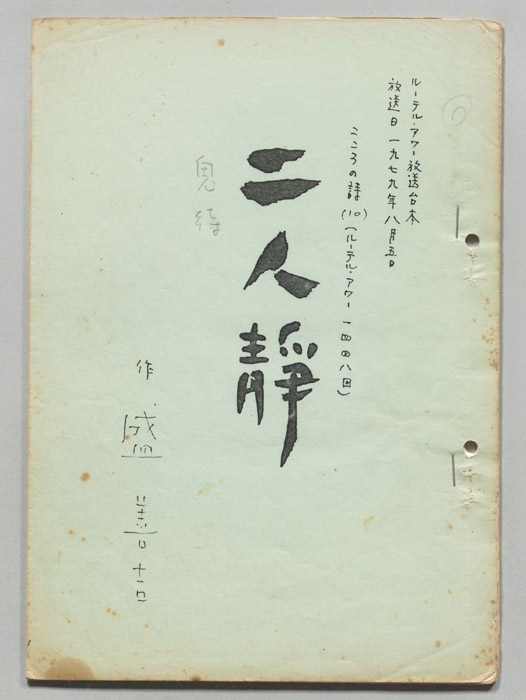 ルーテル・アワー放送台本
放送日 一九七九年八月五日
こころの詩(10)(ルーテル・アワー 一四四八回)
二人静
作 盛 善吉